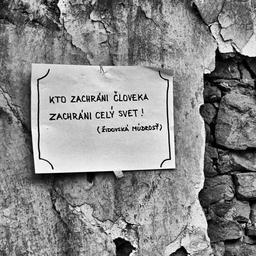 KTO ZACHRÁNI ČLOVEKA
ZACHRÁNI CELÝ SVET!
(ŽIDOVSKÁ MÚDROSŤ)